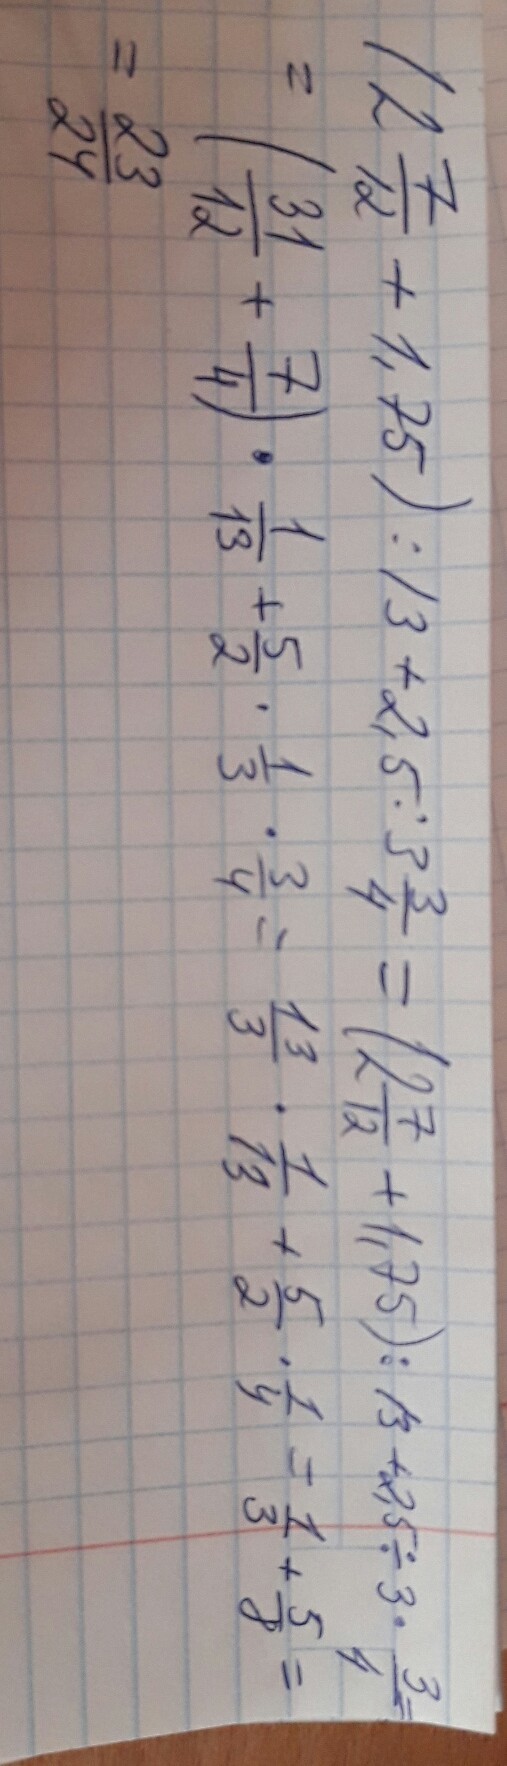 (2 7/12 + 1,75) : 13 + 2,5 : 3 3/4 = (2 7/12 + 1,75) : 13 + 2,5 ÷ 3 · 3/4 =
= (31/12 + 7/4) · 1/13 + 5/2 · 1/3 · 3/4 = 13/3 · 1/13 + 5/2 · 1/4 = 1/3 + 5/8 =
= 23/24